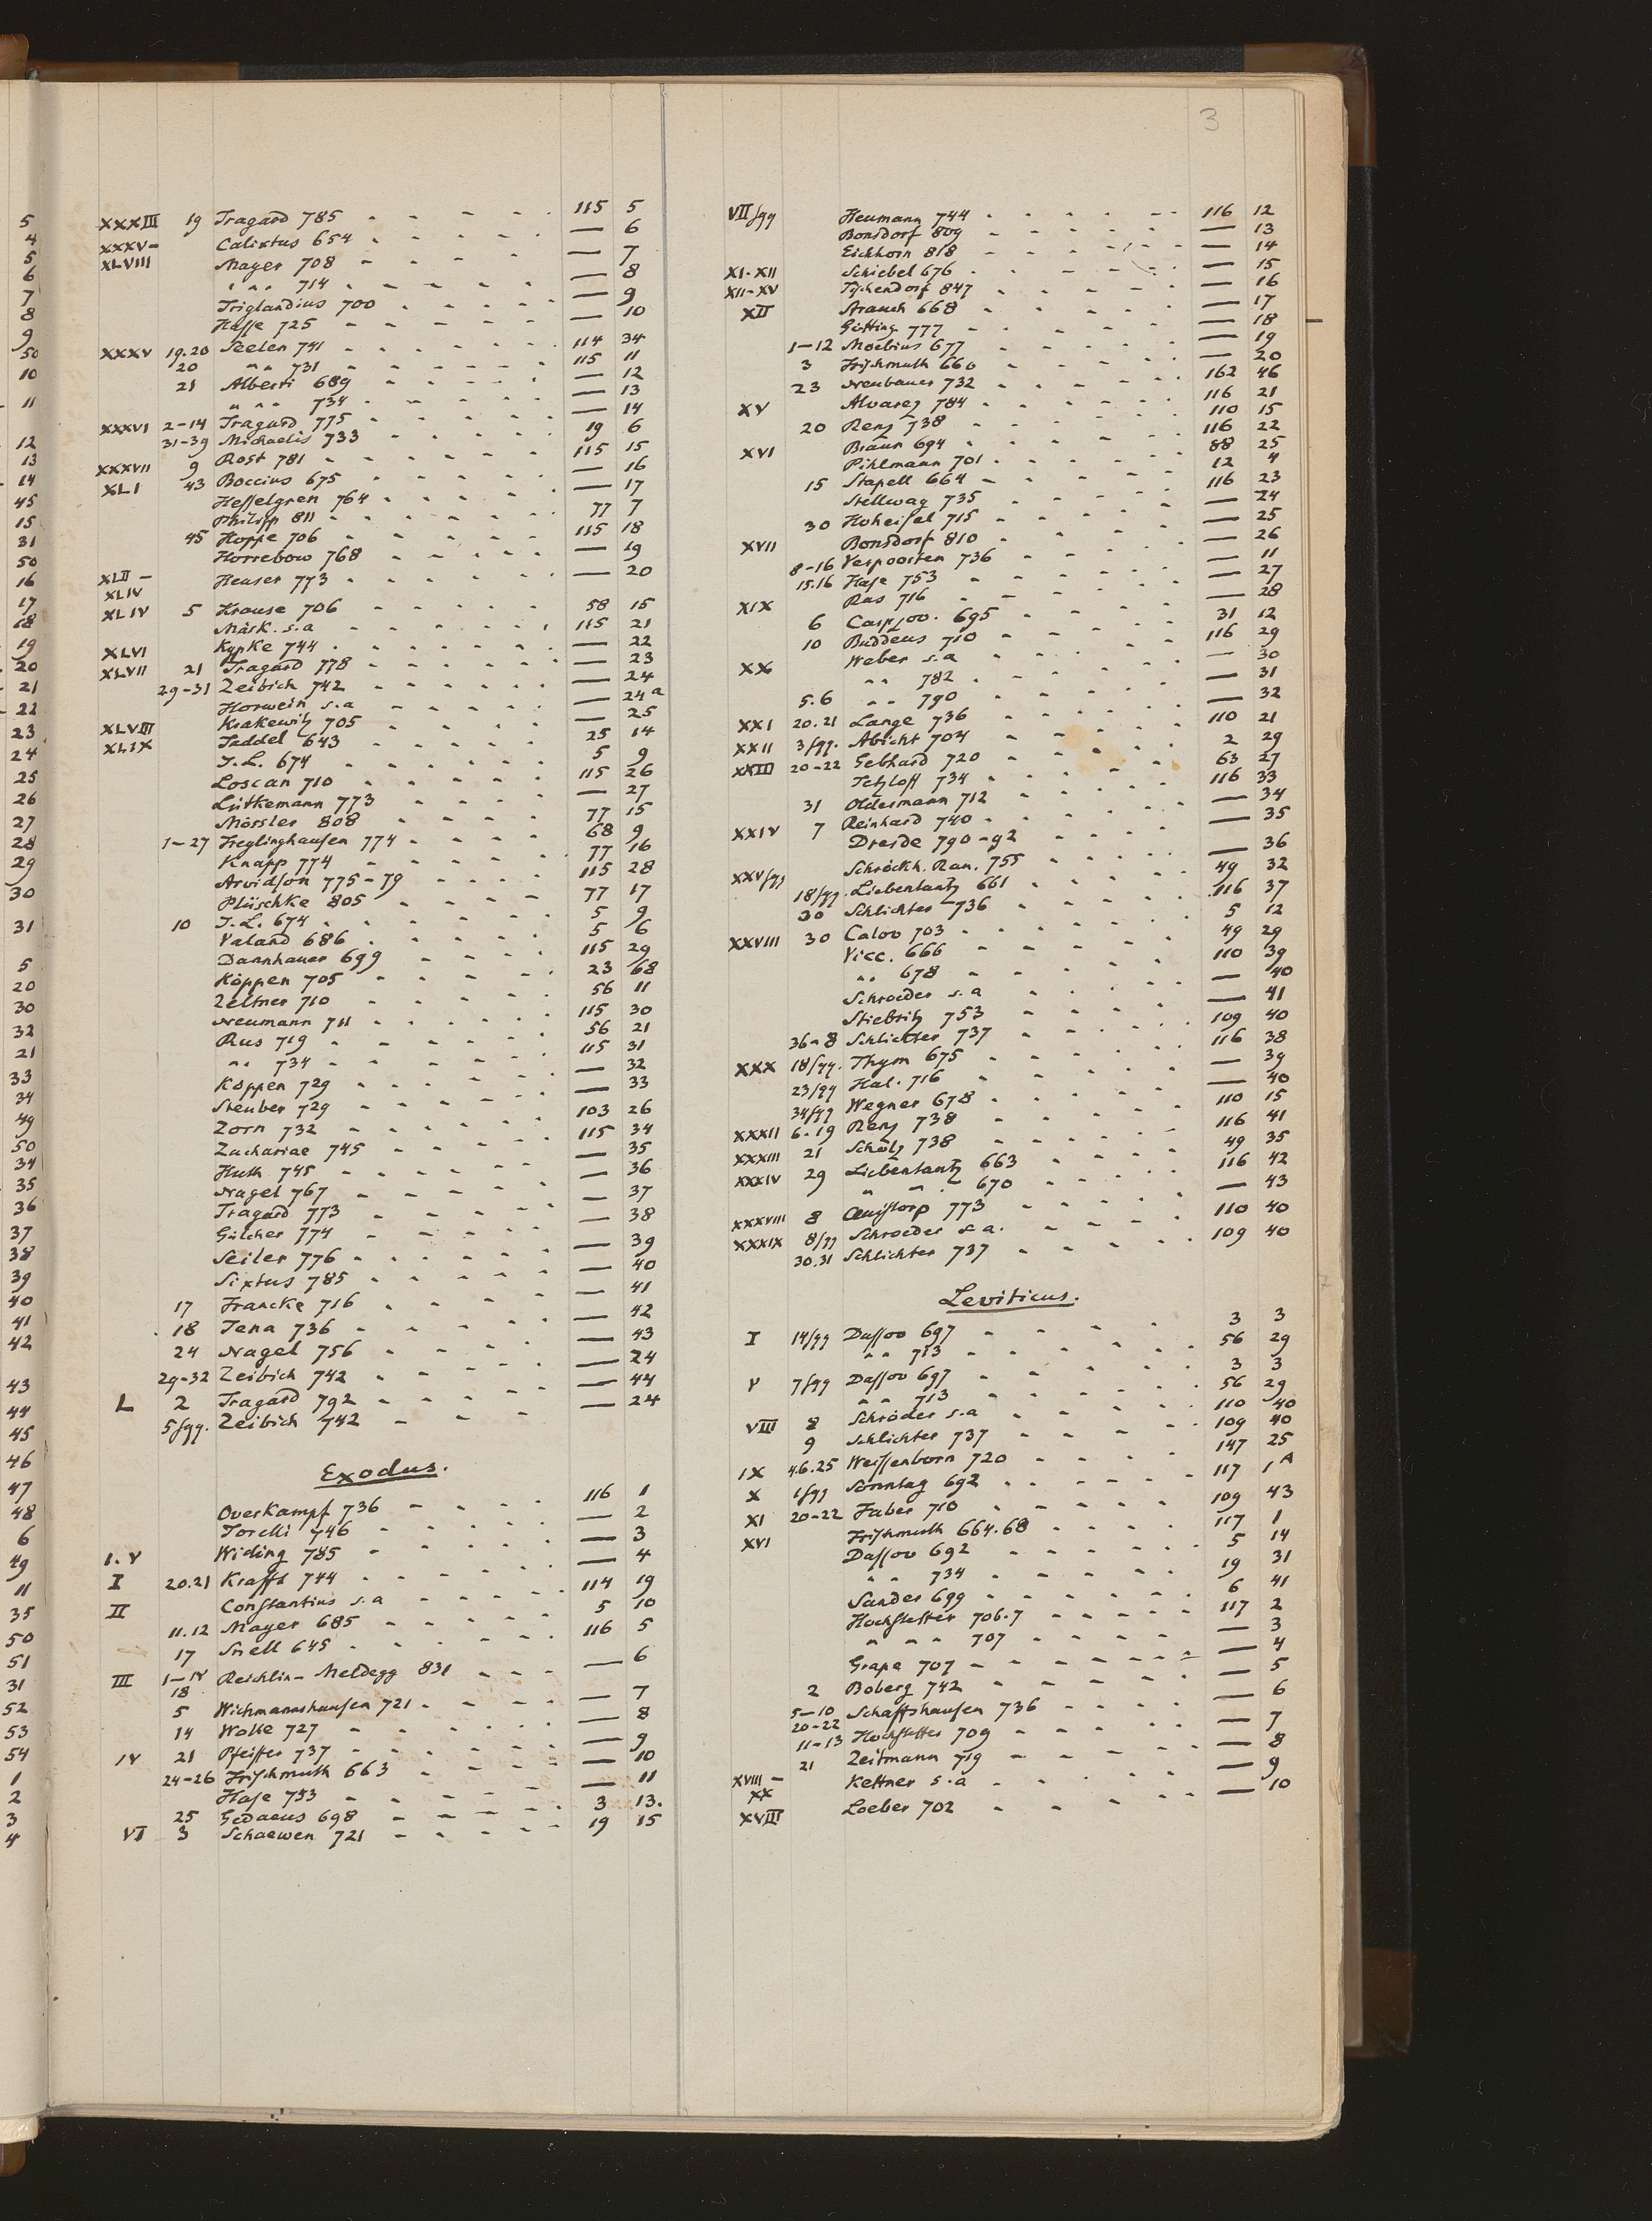 3
XXXIII 19 Tragard 785 - - - - - 115 5
XXXV- Calixtus 654 - - - - - — 6
XLVIII Mayer 708 - - - - - — 7
" " " 714 - - - - - — 8
Triglandius 700 - - - - - — 9
Hasse 725 - - - - - — 10
XXXV 19.20 Seelen 741 - - - - - 114 34
20 " " 731 - - - - - 115 11
21 Alberti 689 - - - - - — 12
" " " 734 - - - - - — 13
XXXVI 2-14 Tragard 775 - - - - - — 14
31-39 Michaelis 733 - - - - - 19 6
XXXVII 9 Rost 781 - - - - - 115 15
XLI 43 Boccius 675 - - - - - — 16
Hesselgren 764 - - - - - — 17
Philipp 811 - - - - - 77 7
45 Hoppe 706 - - - - - 115 18
Horrebow 768 - - - - - — 19
XLII - XLIV Heuser 773 - - - - - — 20
XLIV 5 Krause 706 - - - - - 58 15
Märk. s.a - - - - - 115 21
XLVI Kypke 744 - - - - - — 22
XLVII 21 Tragard 778 - - - - - — 23
29-31 Zeibich 742 - - - - - — 24
Horwein s.a - - - - - — 24a
XLVIII Krakewitz 705 - - - - - — 25
XLIX Taddel 643 - - - - - 25 14
J.L. 674 - - - - - 5 9
Loscan 710 - - - - - 115 26
Lütkemann 773 - - - - - — 27
Mössler 808 - - - - - 77 15
1-27 Heglinghausen 774 - - - - 68 9
Knapp 774 - - - - - 77 16
Arvidson 775-79 - - - - 115 28
Plüschke 805 - - - - 77 17
10 J.L. 674 - - - - - 5 9
Valand 686 - - - - - 5 6
Dannhauer 699 - - - - 115 29
Köppen 705 - - - - - 23 68
Zeltner 710 - - - - - 56 11
Neumann 711 - - - - - 115 30
Rus 719 - - - - - 56 21
" " 734 - - - - - 115 31
Köppen 729 - - - - - — 32
Steuber 729 - - - - - — 33
Zorn 732 - - - - - 103 26
Zachariae 745 - - - - 115 34
Huth 745 - - - - - — 35
Nagel 767 - - - - - — 36
Tragard 773 - - - - - — 37
Gülcher 774 - - - - - — 38
Seiler 776 - - - - - — 39
Sixtus 785 - - - - - — 40
17 Francke 716 - - - - - — 41
18 Jena 736 - - - - - — 42
24 Nagel 756 - - - - - — 43
29-32 Zeibich 742 - - - - — 24
L 2 Tragard 792 - - - - — 44
5 sqq. Zeibich 742 - - - — 24
Exodus.
Overkampf 736 - - - - 116 1
Torelli 746 - - - - - — 2
I.V Widing 785 - - - - - — 3
I 20.21 Krafft 744 - - - - - — 4
II Constantius s.a - - - - 114 19
11.12 Mayer 685 - - - - - 5 10
17 Snell 645 - - - - - 116 5
III 1-IV 18 Reichlin-Meldegg 831 - - - — 6
5 Wichmannshausen 721 - - - - — 7
14 Wolle 727 - - - - - — 8
IV 21 Pfeiffer 737 - - - - - — 9
24-26 Frischmuth 663 - - - - — 10
Hase 753 - - - - - — 11
25 Gedaeus 698 - - - - - 3 13.
VI 3 Schaewen 721 - - - - - 19 15
VII sqq Heumann 744 - - - - - - 116 12
Bonsdorf 809 - - - - - — 13
Eichhorn 818 - - - - - — 14
XI-XII Schiebel 676 - - - - - — 15
XII-XV Tischendorf 847 - - - - - — 16
XII Strauch 668 - - - - - — 17
Gütting 777 - - - - - — 18
1-12 Moebius 677 - - - - - — 19
3 Frischmuth 660 - - - - - — 20
23 Neubauer 732 - - - - - 162 46
XV Alvarez 784 - - - - - 116 21
20 Renz 738 - - - - - 110 15
XVI Braun 694 - - - - - 116 22
Pihlmann 701 - - - - - 88 25
15 Stapell 664 - - - - - 12 4
Stellwag 735 - - - - - 116 23
30 Hoheisel 715 - - - - - — 24
XVII Bonsdorf 810 - - - - - — 25
8-16 Verpoorten 736 - - - - — 26
15.16 Hase 753 - - - - - — 11
XIX Ras 716 - - - - - — 27
6 695 - - - - - — 28
10 Buddeus 710 - - - - - 31 12
XX Weber s.a - - - - - 116 29
" " 782 - - - - - — 30
5.6 " " 790 - - - - - — 31
XXI 20.21 Lange 736 - - - - - — 32
XXII 3 sqq. Abicht 704 - - - - - 110 21
XXIII 20-22 Gebhard 720 - - - - - 2 29
Tetzloff 734 - - - - - 63 27
31 Oldermann 712 - - - - - 116 33
XXIV 7 Reinhard 740 - - - - - — 34
Dresde 790-92 - - - - - — 35
XXV sqq Schröckh. Ran. 755 - - - - — 36
18 sqq. Liebentantz 661 - - - - 49 32
30 Schlichter 736 - - - - - 116 37
XXVIII 30 Calov 703 - - - - - 5 12
Vicc. 666 - - - - - 49 29
" " 678 - - - - - 110 39
Schroeder s.a - - - - - — 40
Stiebritz 753 - - - - - — 41
36-8 Schlichter 737 - - - - - 109 40
XXX 18 sqq. Thym 675 - - - - - 116 38
23 sqq Hal. 716 - - - - - — 39
34 sqq Wegner 678 - - - - - — 40
XXXII 6.19 Renz 738 - - - - - 110 15
XXXIII 21 Scholz 738 - - - - - 116 41
XXXIV 29 Liebentantz 663 - - - - 49 35
" " " 670 - - - - 116 42
XXXVIII 8 Quistorp 773 - - - - - — 43
XXXIX 8 sqq Schroeder s.a. - - - - 110 40
30.31 Schlichter 737 - - - - - 109 40
Leviticus.
I 14 sqq Dassov 697 - - - - - 3 3
" " 713 - - - - - 56 29
V 7 sqq Dassov 697 - - - - - 3 3
" " 713 - - - - - 56 29
VIII 8 Schröder s.a - - - - - 110 40
9 Schlichter 737 - - - - - 109 40
IX 4.6.25 Weissenborn 720 - - - - 147 25
X 1 sqq Sonntag 692 - - - - - 117 1A
XI 20-22 Faber 710 - - - - - 109 43
XVI Frischmuth 664.68 - - - - 117 1
Dassov 692 - - - - - 5 14
" " 734 - - - - - 19 31
Sander 699 - - - - - 6 41
Hochstetter 706.7 - - - - - 117 2
" " " 707 - - - - - — 3
Grape 707 - - - - - - — 4
2 Boberg 742 - - - - - — 5
5-10 20-22 Schaffshausen 736 - - - - — 6
11-13 Hochstetter 709 - - - - - — 7
21 Zeitmann 719 - - - - - — 8
XVIII - XX Kettner s.a - - - - - — 9
XVIII Loeber 702 - - - - - — 10